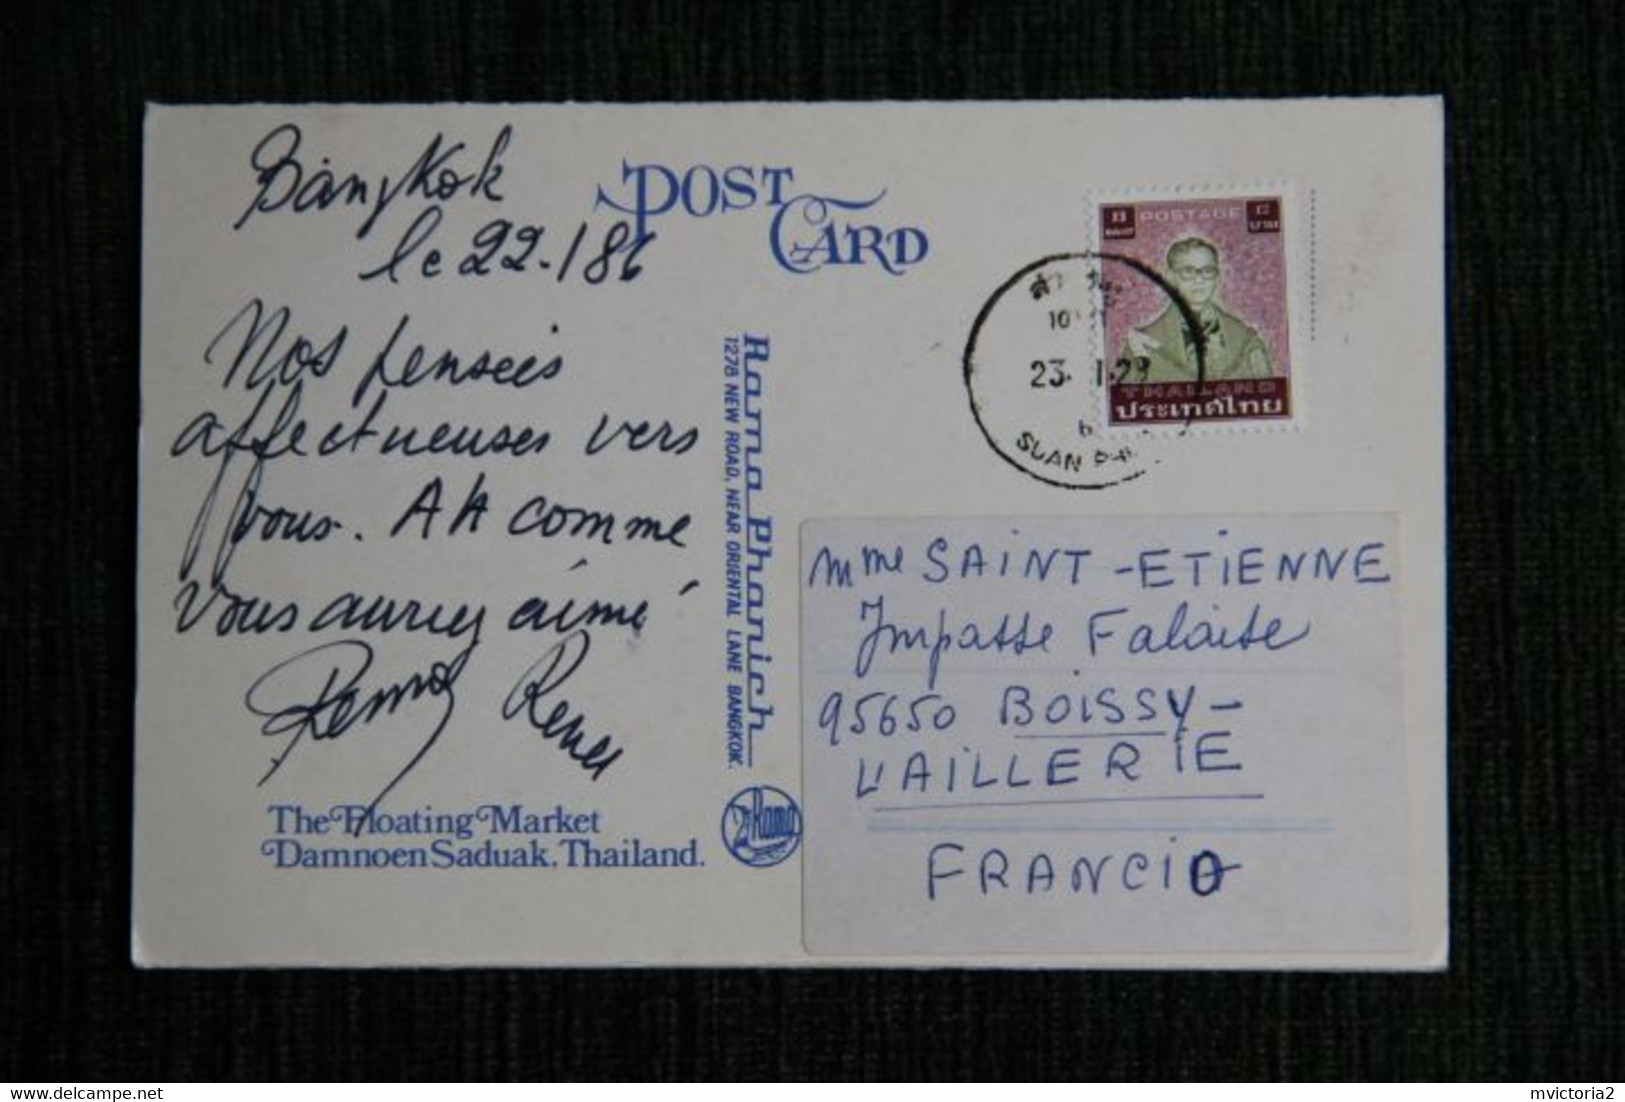 Bangkok
le 22.186
Nos pensées
affectueuses vers
vous. Ah comme
vous auriez aimé
Renée
The Floating Market
Damnoen Saduak, Thailand.
POST
CARD
Rama Phanich
1278 NEW ROAD, NEAR ORIENTAL LANE BANGKOK.
Rama
8 POSTAGE ๘
BAHT บาท
THAILAND
ประเทศไทย
10
23. 1.29
SUAN
Mme SAINT-ETIENNE
Impasse Falaise
95650 BOISSY-
L'AILLERIE
FRANCIA
delcampe.net
mvictoria2